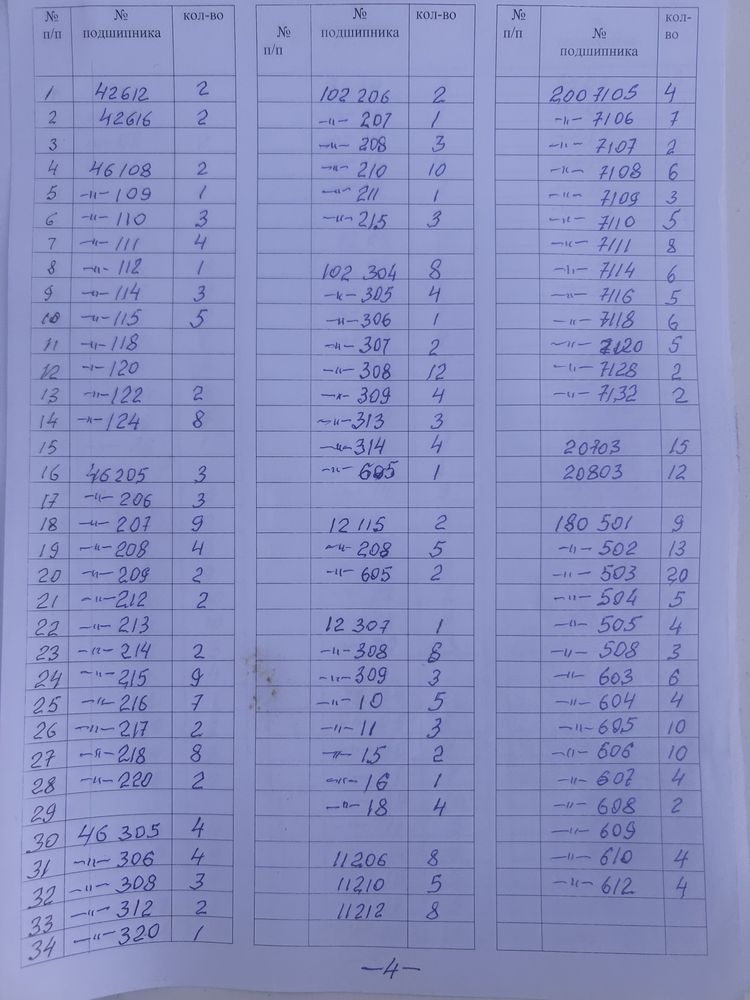 № п/п № подшипника кол-во
1 42612 2
2 42616 2
3
4 46108 2
5 -"- 109 1
6 -"- 110 3
7 -"- 111 4
8 -"- 112 1
9 -"- 114 3
10 -"- 115 5
11 -"- 118
12 -"- 120
13 -"- 122 2
14 -"- 124 8
15
16 46205 3
17 -"- 206 3
18 -"- 207 9
19 -"- 208 4
20 -"- 209 2
21 -"- 212 2
22 -"- 213
23 -"- 214 2
24 -"- 215 9
25 -"- 216 7
26 -"- 217 2
27 -"- 218 8
28 -"- 220 2
29
30 46 305 4
31 -"- 306 4
32 -"- 308 3
33 -"- 312 2
34 -"- 320 1
№ п/п № подшипника кол-во
102 206 2
-"- 207 1
-"- 208 3
-"- 210 10
-"- 211 1
-"- 215 3
102 304 8
-"- 305 4
-"- 306 1
-"- 307 2
-"- 308 12
-"- 309 4
-"- 313 3
-"- 314 4
-"- 605 1
12 115 2
-"- 208 5
-"- 605 2
12 307 1
-"- 308 8
-"- 309 3
-"- 10 5
-"- 11 3
-"- 15 2
-"- 16 1
-"- 18 4
11206 8
11210 5
11212 8
№ п/п № подшипника кол-во
2007105 4
-"- 7106 7
-"- 7107 2
-"- 7108 6
-"- 7109 3
-"- 7110 5
-"- 7111 8
-"- 7114 6
-"- 7116 5
-"- 7118 6
-"- 7120 5
-"- 7128 2
-"- 7132 2
20703 15
20803 12
180 501 9
-"- 502 13
-"- 503 20
-"- 504 5
-"- 505 4
-"- 508 3
-"- 603 6
-"- 604 4
-"- 605 10
-"- 606 10
-"- 607 4
-"- 608 2
-"- 609
-"- 610 4
-"- 612 4
-4-